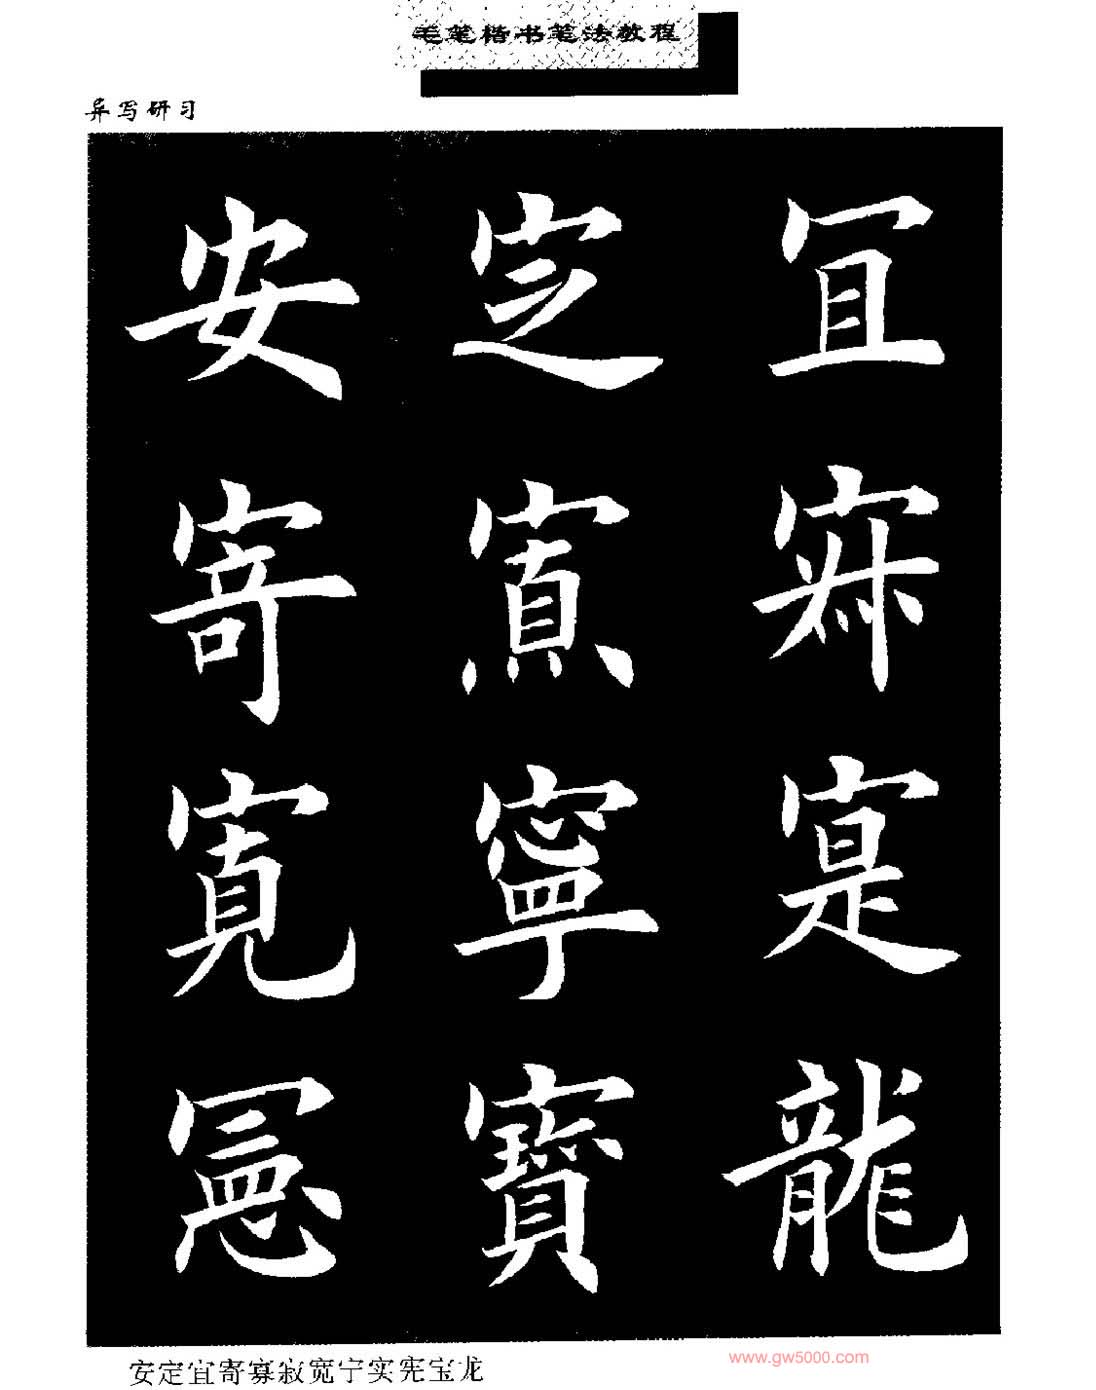 毛笔楷书笔法教程
异写研习
安定宜
寄寡寂
寬寧寔
憲寶龍
安定宜寄寡寂宽宁实宪宝龙
www.gw5000.com